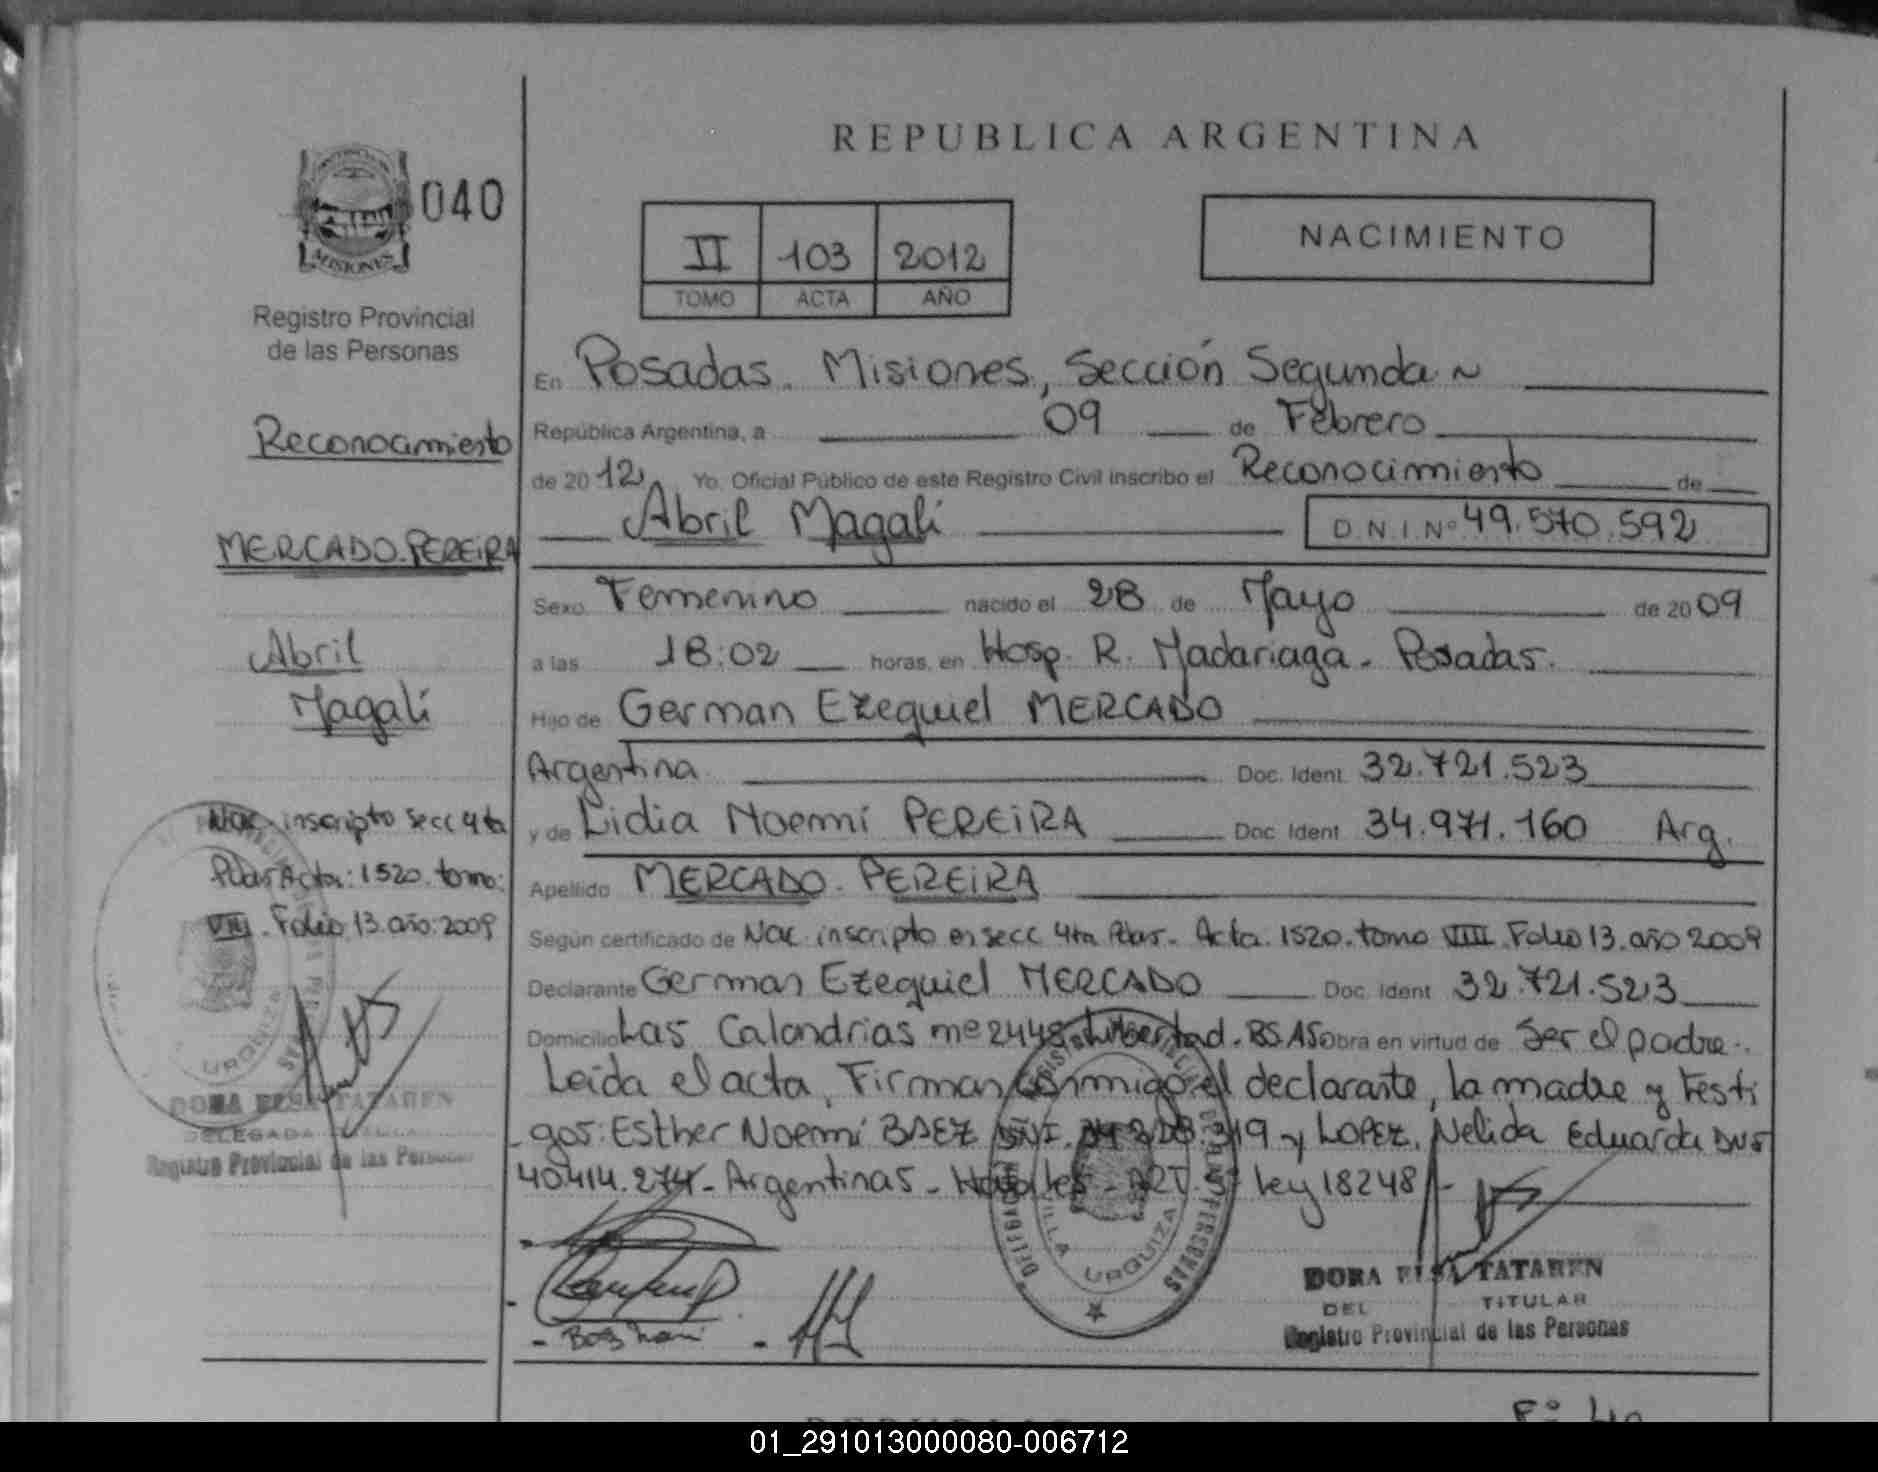 REPUBLICA ARGENTINA
040
MISIONES
Registro Provincial
de las Personas
II 103 2012
TOMO ACTA AÑO
NACIMIENTO
Reconocimiento
MERCADO.PEREIRA
Abril
Magalí
Nac. inscripto secc 4ta
Pdas Acta: 1520. tomo:
VIII. Folio 13. año: 2009
URQUIZA
DORA ELSA TATAREN
DELEGADA
Registro Provincial de las Personas
En Posadas. Misiones, Sección Segunda ~
República Argentina, a 09 de Febrero
de 2012, Yo, Oficial Público de este Registro Civil inscribo el Reconocimiento de
Abril Magalí D.N.I.Nº 49.570.592
Sexo Femenino nacido el 28 de Mayo de 2009
a las 18:02 horas, en Hosp. R. Madariaga - Posadas.
Hijo de German Ezequiel MERCADO
Argentina Doc. Ident. 32.721.523
y de Lidia Noemí PEREIRA Doc. Ident 34.971.160 Arg.
Apellido MERCADO. PEREIRA
Según certificado de Nac. inscripto en secc 4ta Pdas. Acta. 1520. tomo VIII. Folio 13. año 2009
Declarante German Ezequiel MERCADO Doc. Ident 32.721.523
Domicilio Las Calandrias 2448 Libertad. BS AS Obra en virtud de Ser el padre.
Leida el acta, Firman conmigo el declarante, la madre y testi
gos: Esther Noemí BAEZ DNI. 319 y LOPEZ, Nelida Eduarda DNI
40414.274 - Argentinas - ART. 5 Ley 18248 -
VILLA URQUIZA
DORA ELSA TATAREN
DEL TITULAR
Registro Provincial de las Personas
Fº 40
01_291013000080-006712